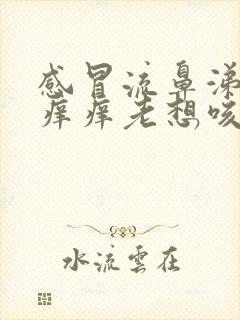 感冒流鼻涕
痒痒老想咳
水流雲在